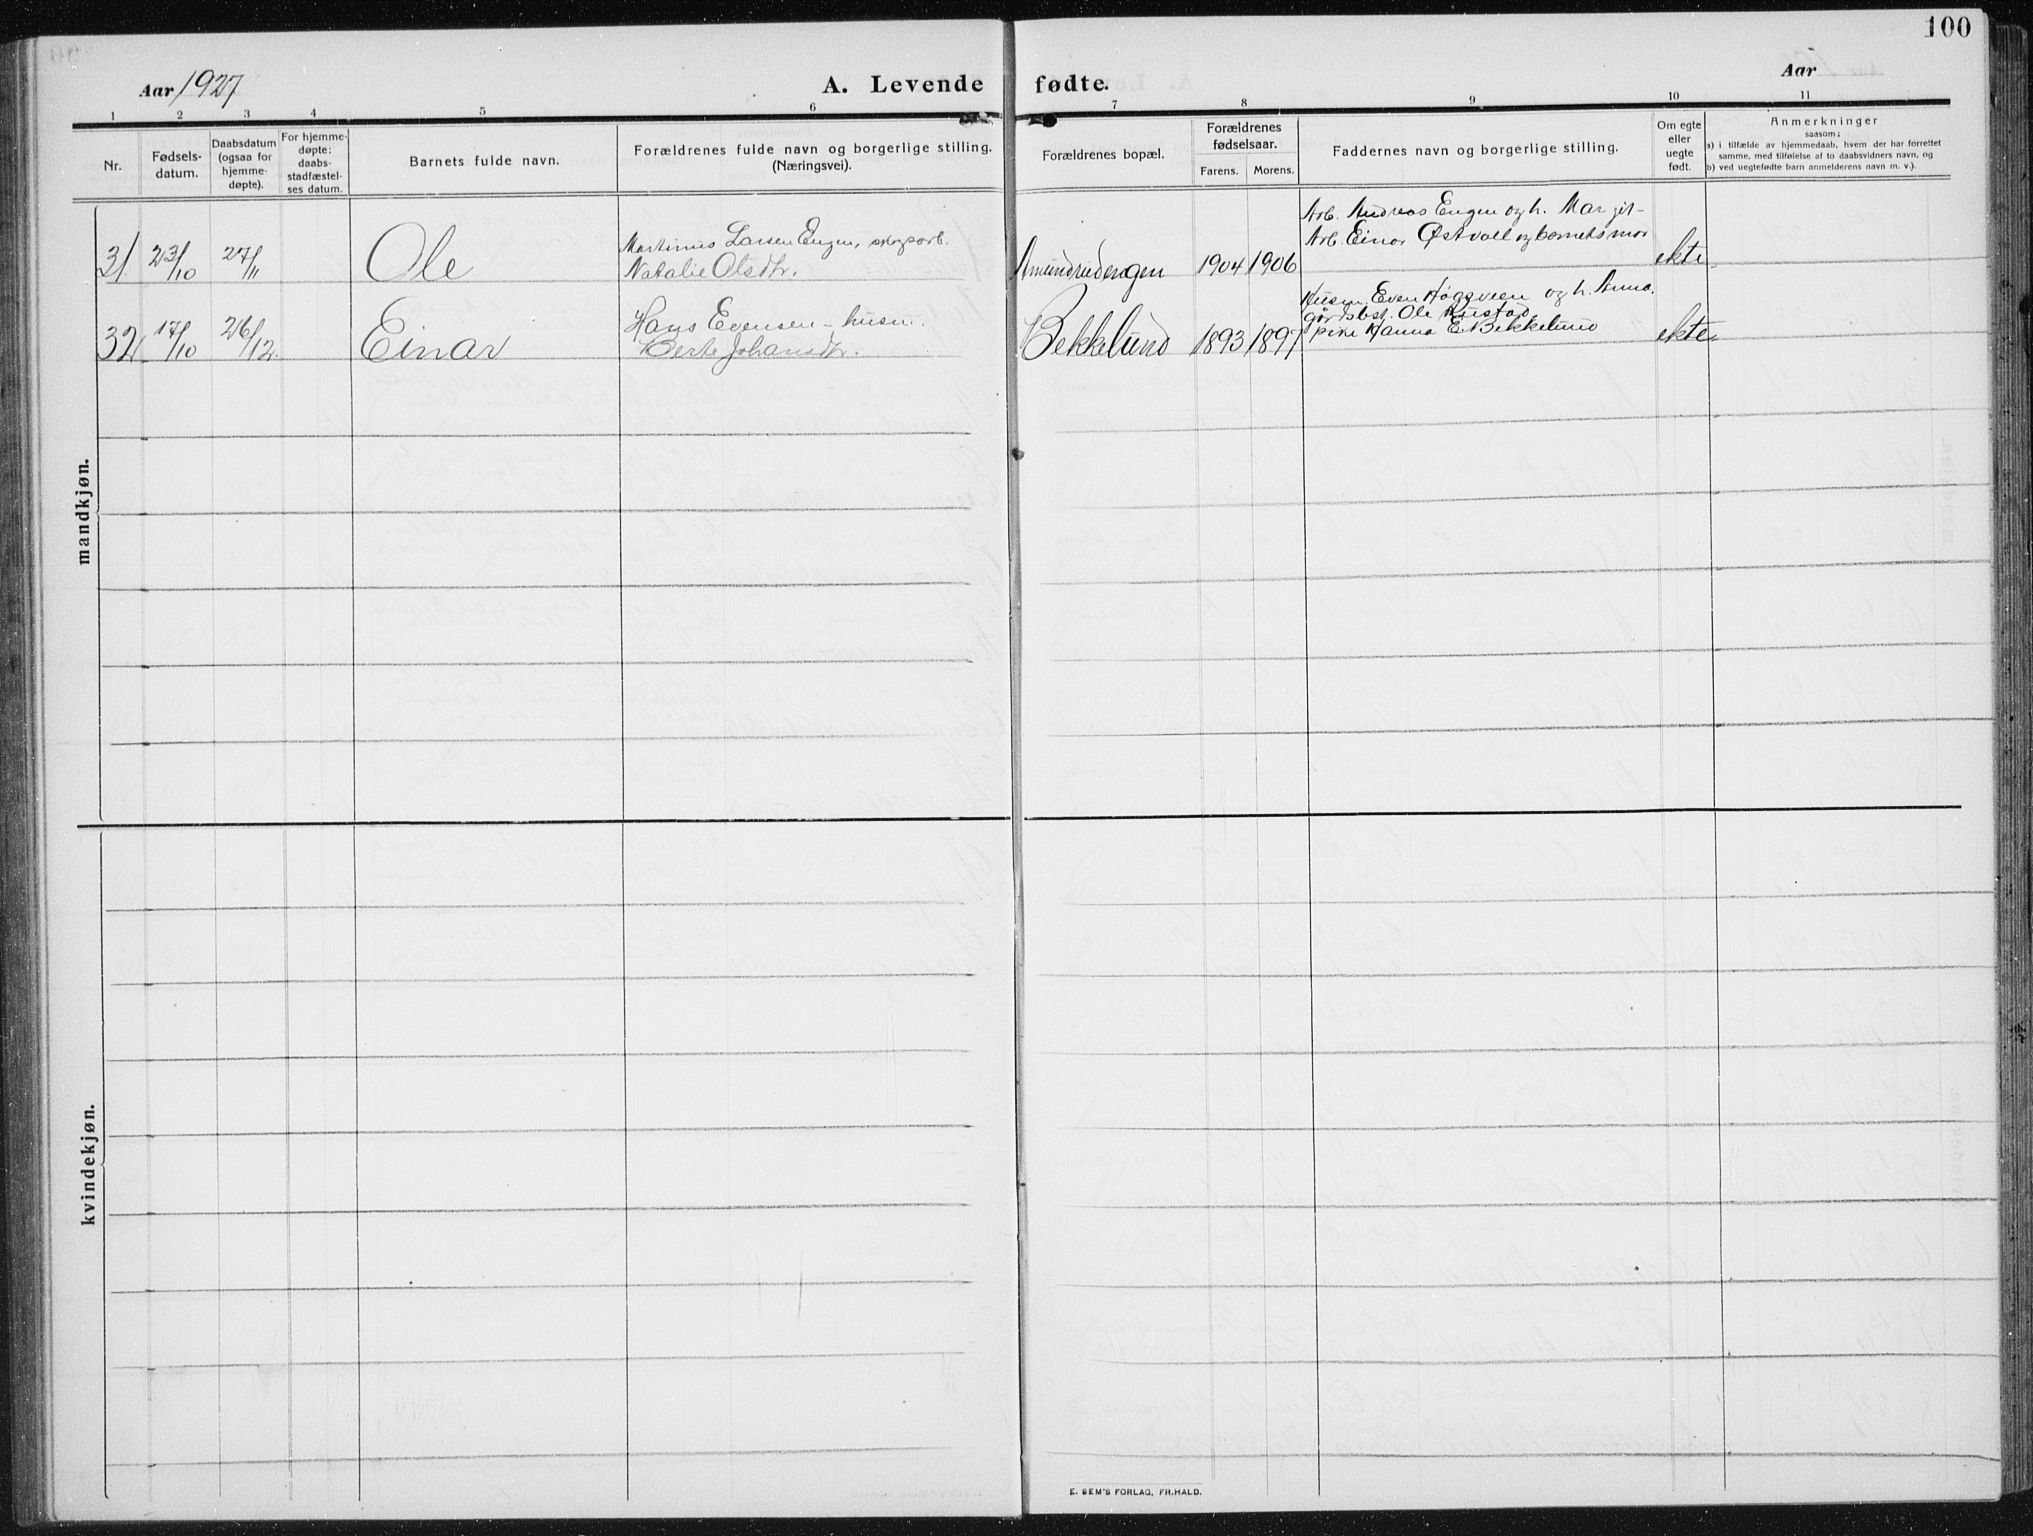 100
Aar 1927
A. Levende fødte.
Aar
1 2 3 4 5 6 7 8 9 10 11
Nr.
Fødsels-
datum.
Daabsdatum
(ogsaa for
hjemme-
døpte).
For hjemme-
døpte:
daabs-
stadfæstel-
ses datum.
Barnets fulde navn.
Forældrenes fulde navn og borgerlige stilling.
(Næringsvei).
Forældrenes bopæl.
Forældrenes
fødselsaar.
Farens. Morens.
Faddernes navn og borgerlige stilling.
Om egte
eller
uegte
født.
Anmerkninger
saasom:
a) i tilfælde av hjemmedaab, hvem der har forrettet
samme, med tilføielse af to daabsvidners navn, og
b) ved uegtefødte barn anmelderens navn m. v.).
mandkjøn.
31 23/10 27/11 Ole
Martinius Larsen Engen, skogsarb.
Natalie Olsdtr.
Amundrudengen 1904 1906
Arb. Andreas Engen og h. Margit-
Arb. Einar Østvoll og barnets mor
ekte
32 17/10 26/12 Einar
Hans Evensen - husm.
Berte Johansdtr.
Bekkelund 1893 1897
Husm. Even Høgsveen og h. Anna.
gårdsbst. Ole Rustad,
pike Hanna E. Bekkelund
ekte
kvindekjøn.
E. SEM'S FORLAG, FR.HALD.